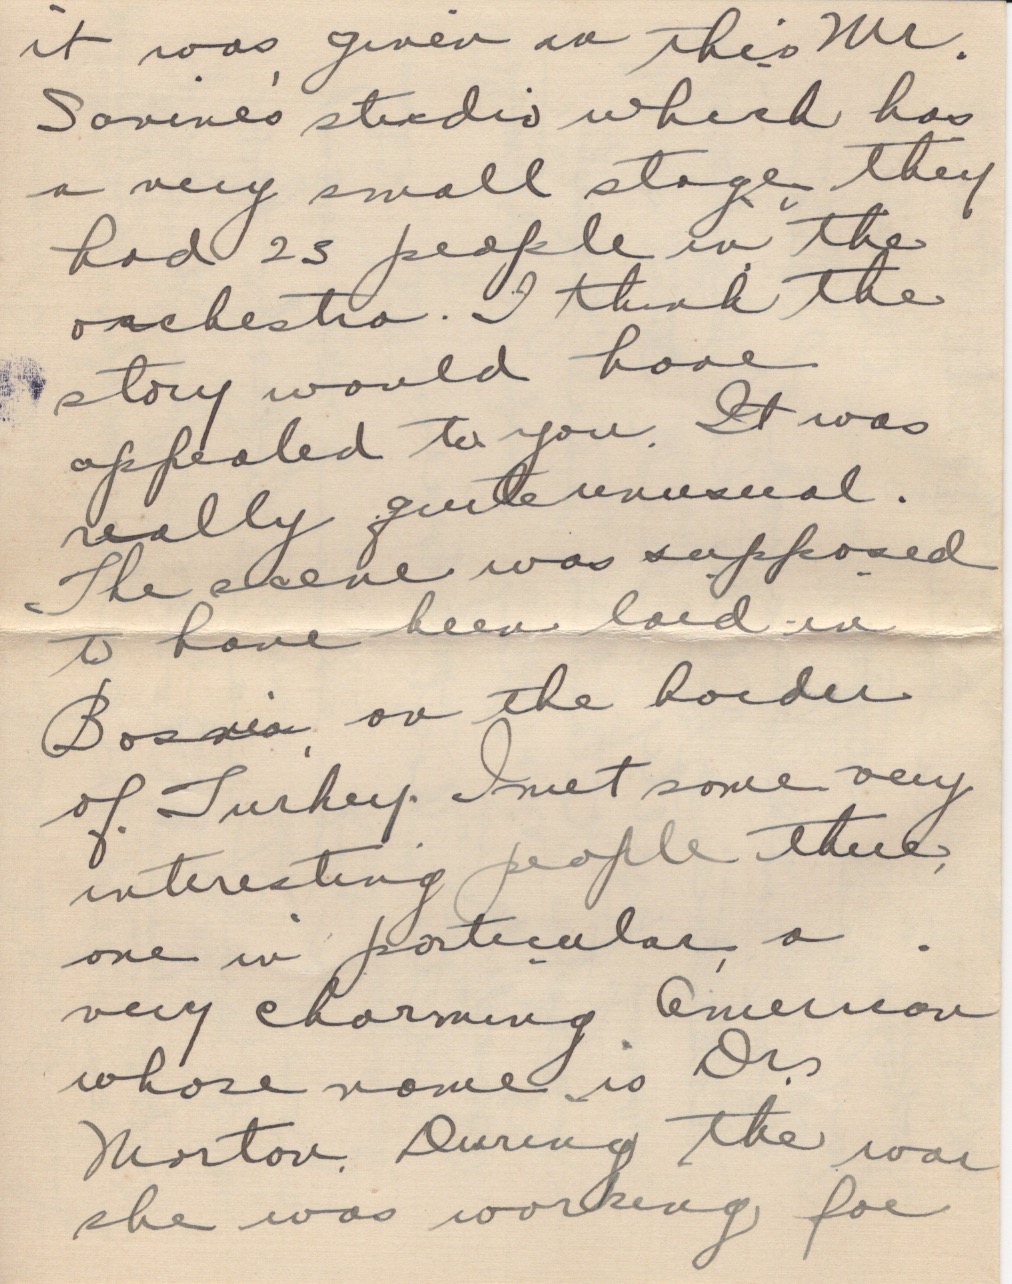 it was given in this Mr.
Savine's studio which has
a very small stage, they
had 25 people in the
orchestra. I think the
story would have
appealed to you. It was
really quite unusual.
The scene was supposed
to have been laid in
Bosnia, on the border
of Turkey. I met some very
interesting people there,
one in particular, a
very charming American
whose name is Dr.
Morton. During the war
she was working for